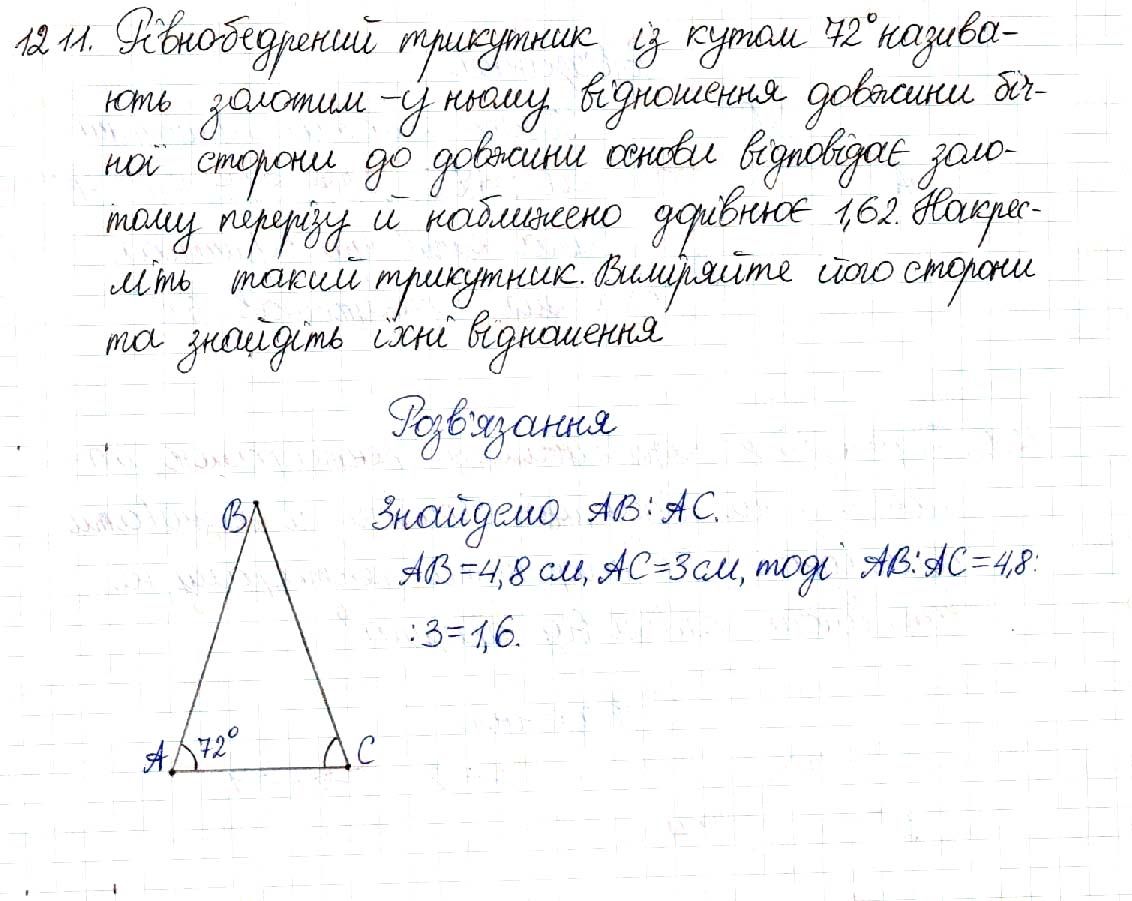 1211. Рівнобедрений трикутник із кутом 72° назива-
ють золотим – у ньому відношення довжини біч-
ної сторони до довжини основи відповідає золо-
тому перерізу й наближено дорівнює 1,62. Накрес-
літь такий трикутник. Виміряйте його сторони
та знайдіть їхні відношення
Розв'язання
Знайдемо AB : AC.
AB = 4,8 см, AC = 3 см, тоді AB : AC = 4,8 :
: 3 = 1,6.
B
A 72° C